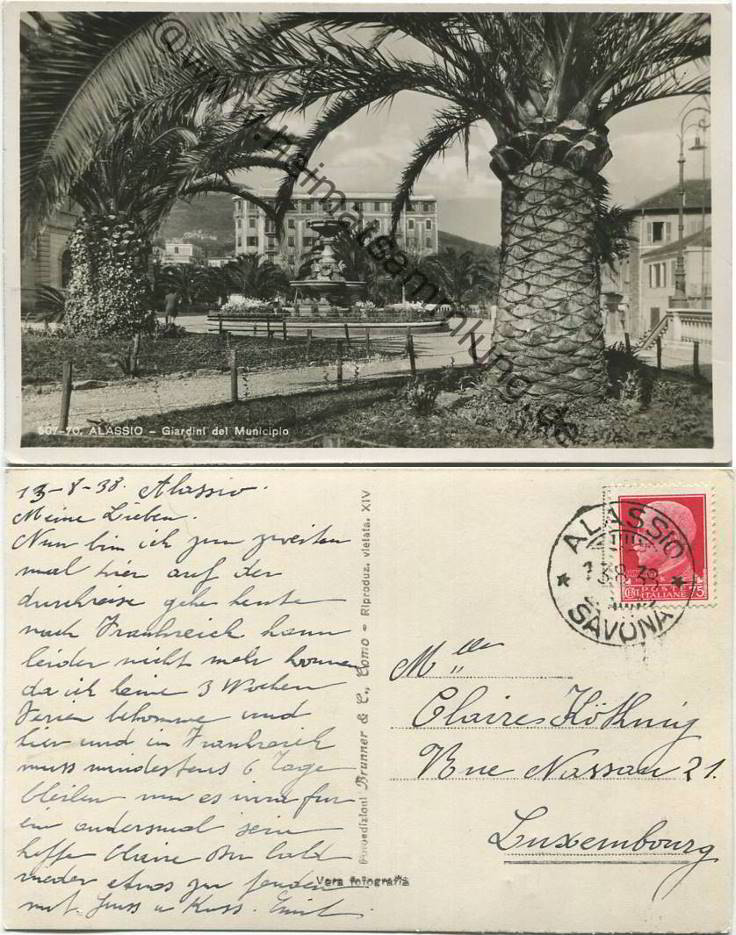 ©www.heimatsammlung.de
607-70. ALASSIO – Giardini del Municipio
13-8-38. Alassio.
Meine Lieben.
Nun bin ich zum zweiten
mal hier auf der
durchreise gehe heute
nach Frankreich kann
leider nicht mehr kommen
da ich keine 3 Wochen
Ferien bekomme und
hier und in Frankreich
muss mindestens 6 Tage
bleiben nun es wird für
ein andersmal sein
hoffe Claire Dir bald
wieder etwas zu senden
mit Gruss u Kuss. Emil.
Fotoedizioni Brunner & C., Como – Riproduz. vietata. XIV
Vera fotografia
ALASSIO
13.8.38
SAVONA
POSTE
ITALIANE
Mlle
Claire Köthnig
Rue Nassau 21.
Luxembourg